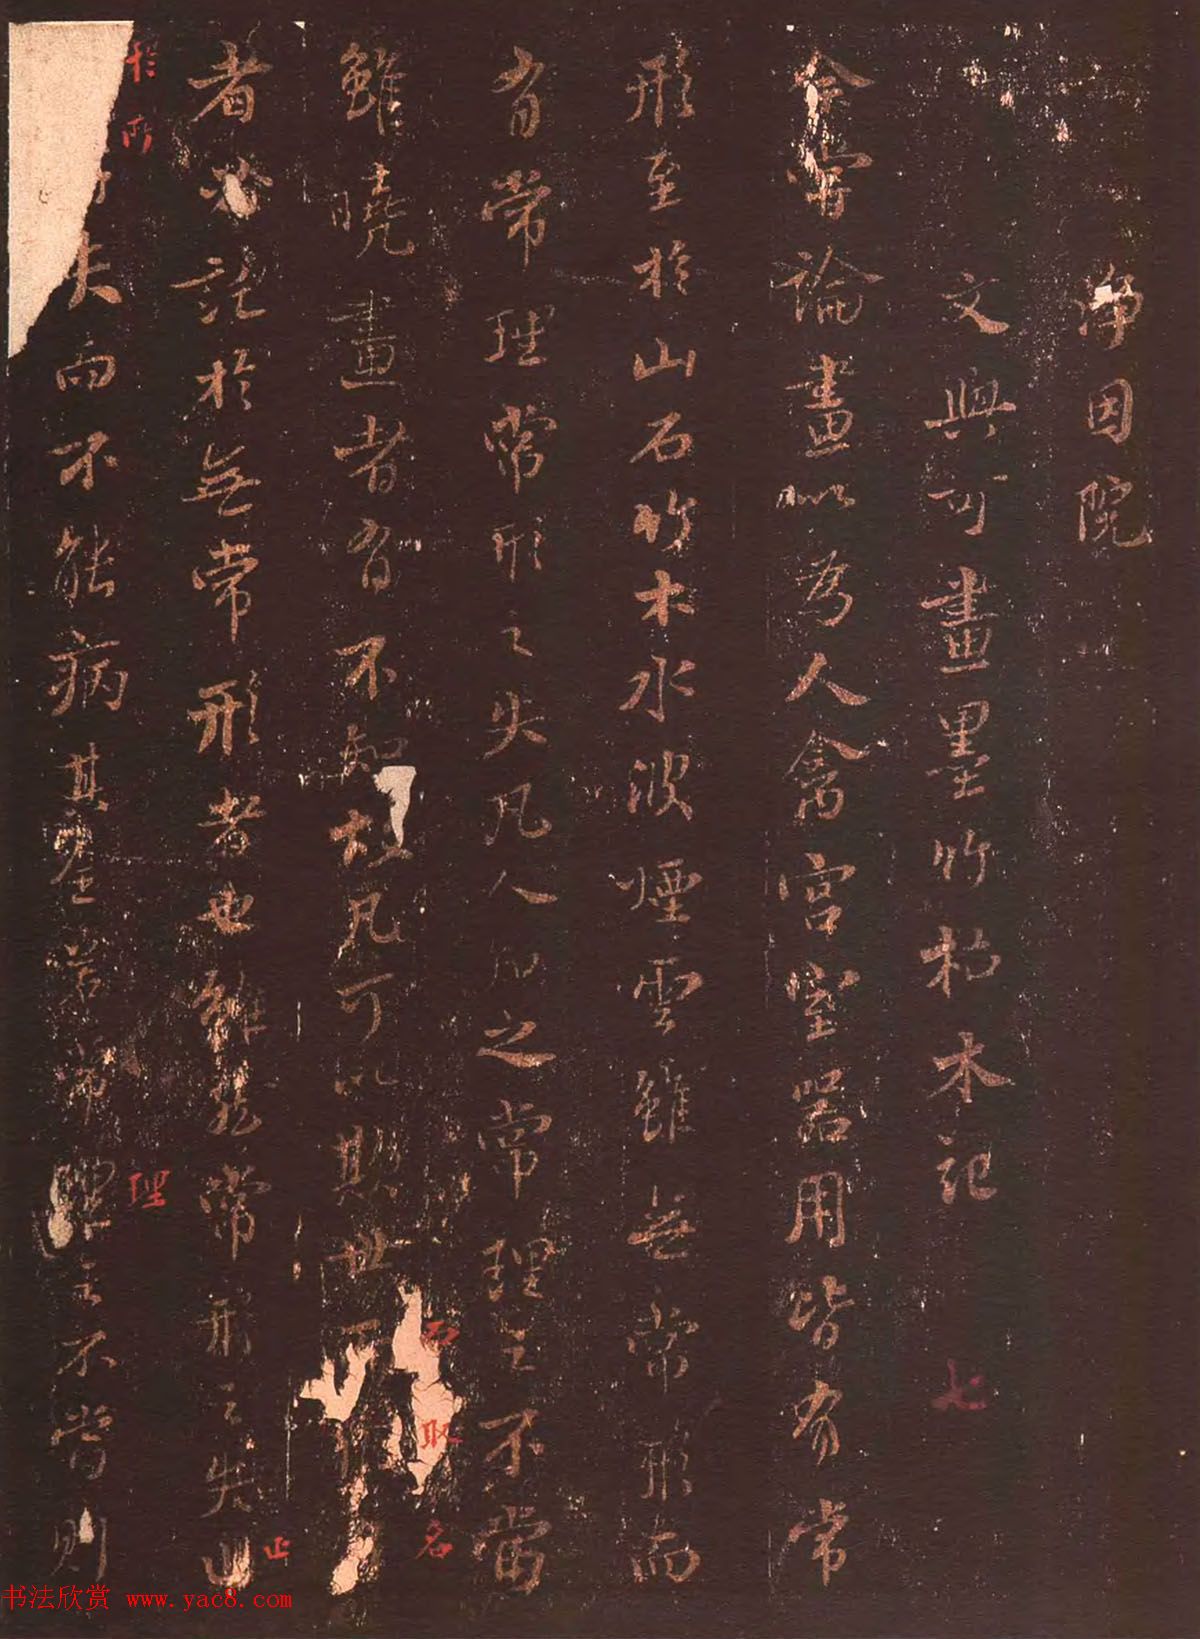 淨因院
文與可畫墨竹枯木記
七
余嘗論畫以為人禽宮室器用皆有常
形至於山石竹木水波煙雲雖無常形而
有常理常形之失凡人知之常理之不當
雖曉畫者有不知故凡可以欺世
而取名
者必託於無常形者也雖然常形之失止
止
於所
失而不能病其全若常理之不當則
理
书法欣赏 www.yac8.com